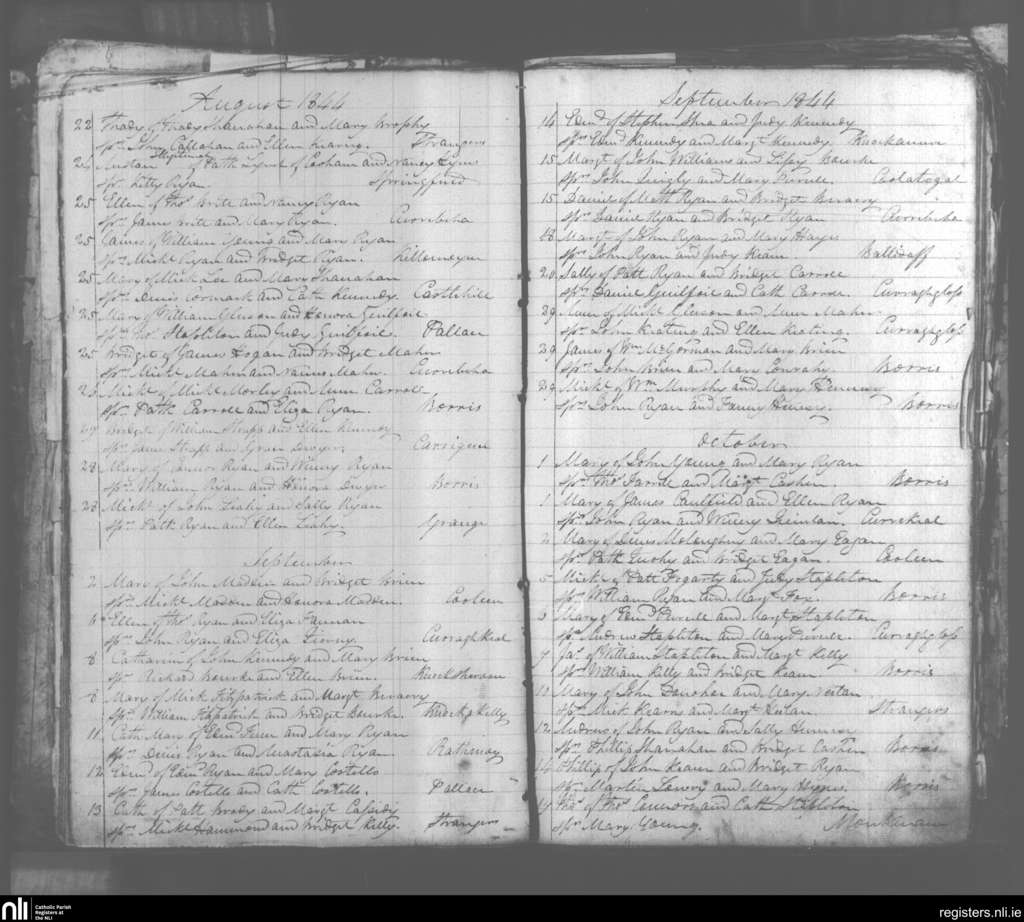 August 1844
22 Thady of Thady Shanahan and Mary Brophy
Sprs John Callahan and Ellen Kearing. Strangers
Illegitimate
24 of Path Lynch of and Nancy
Spr. Kitty Ryan. Springfield
25 Ellen of Thos Britt and Nancy Ryan
Sprs James Britt and Mary Ryan.
25 James of William Young and Mary Ryan
Sprs Michl Ryan and Bridget Ryan. Killermoyer
25 Mary of Mick Lee and Mary Shanahan
Sprs Denis Cormack and Cath Kennedy. Castlehill
25 Mary of William Gleeson and Honora Guilfoil
Sprs Thos Stapleton and Judy Guilfoil. Pallan
25 Bridget of James Hogan and Bridget Maher
Sprs Michl Maher and Maher.
25 Michl of Michl Morley and Anne Carroll
Sprs Path Carroll and Eliza Ryan. Borris
27 Bridget of William Strapp and Ellen Kennedy
Sprs James Strapp and Grace Dwyer. Carrigeen
28 Mary of Connor Ryan and Winny Ryan
Sprs William Ryan and Honora Dwyer Borris
28 Mick of John Leahy and Sally Ryan
Sprs Path Ryan and Ellen Leahy. Graigue
September
2 Mary of John Madden and Bridget Brien
Sprs Michl Madden and Honora Madden. Cooleen
4 Ellen of Thos Ryan and Eliza
Sprs John Ryan and Eliza Finny. Curraghkeal
8 Catharine of John Kennedy and Mary Brien
Sprs Richard Bourke and Ellen Brien.
8 Mary of Mick Fitzpatrick and Margt
Sprs William Fitzpatrick and Bridget Bourke. Knocks Kelly
11 Cath Mary of Edmd and Mary Ryan
Sprs Denis Ryan and Anastasia Ryan Rathmoy
12 Edmd of Edmd Ryan and Mary Costello
Sprs James Costello and Cath Costello. Pallan
13 Cath of Patt Brady and Margt Cassidy
Sprs Michl Hammond and Bridget Kelly. Strangers
September 1844
14 Edmd of Stephen Shea and Judy Kennedy
Sprs Edmd Kennedy and Margt Kennedy.
15 Margt of John Williams and Bourke
Sprs John Quigly and Mary Purcell.
15 Daniel of Math Ryan and Bridget
Sprs Daniel Ryan and Bridget Ryan
18 Margt of John Ryan and Mary Hayes
Sprs John Ryan and Judy Keane. Balliduff
20 Sally of Patt Ryan and Bridget Carroll
Sprs Daniel Guilfoil and Cath Carroll. Curraghgloss
29 Anne of Michl Gleeson and Anne Maher
Sprs John Keating and Ellen Keating. Curraghgloss
29 James of Wm McGorman and Mary Brien
Sprs John Brien and Mary Borris
29 Michl of Wm Murphy and Mary Hennessy
Sprs John Ryan and Fanny Henry. Borris
October
1 Mary of John Young and Mary Ryan
Sprs Thos Farrell and Margt Cashen. Borris
1 Mary of James Caulfield and Ellen Ryan
Sprs John Ryan and Winny Quinlan.
2 Mary of Denis McLoughny and Mary Eagan
Sprs Path and Bridget Eagan. Cooleen
5 Mick of Patt Fogarty and Judy Stapleton
Sprs William Ryan and Margt Fox. Borris
5 Mary of Edmd Purcell and Margt Stapleton
Sprs Andrew Stapleton and Mary Purcell. Curraghgloss
7 Jas of William Stapleton and Margt Kelly
Sprs William Kelly and Bridget Keane Borris
10 Mary of John Donohoe and Mary Nestan
Sprs Mick Kearn and Margt Nestan. Strangers
12 Andrew of John Ryan and Sally
Sprs Phillip Shanahan and Bridget Cashen Borris
14 Phillip of John Keane and Bridget Ryan
Sprs Martin Lowry and Mary Hynes. Borris
17 Thos of Thos Cannon and Cath Stapleton
Spr Mary Young.
nli
Catholic Parish
Registers at
the NLI
registers.nli.ie